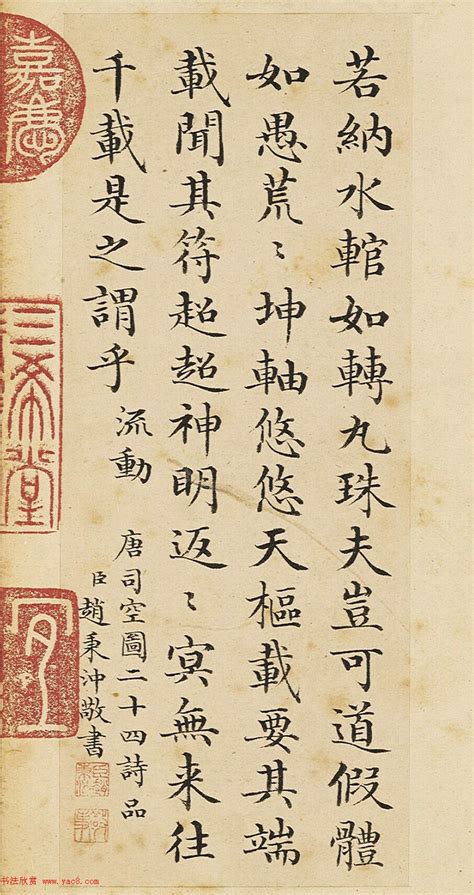 若納水輨如轉丸珠夫豈可道假體
如愚荒〻坤軸悠悠天樞載要其端
載聞其符超超神明返〻冥無来往
千載是之謂乎 流動
唐司空圖二十四詩品
臣趙秉沖敬書
嘉慶
三希堂
宜
书法欣赏 www.yac8.com